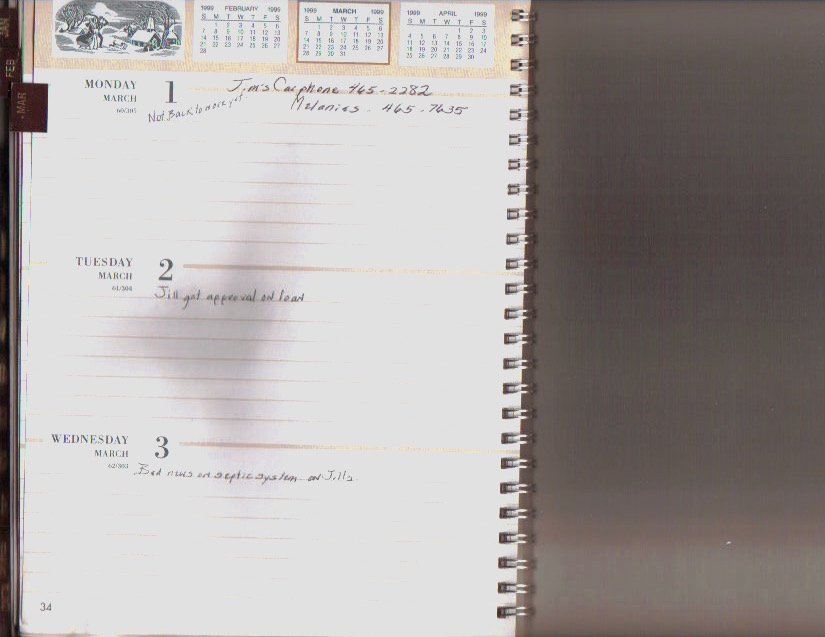 1999 FEBRUARY 1999
S M T W T F S
1 2 3 4 5 6
7 8 9 10 11 12 13
14 15 16 17 18 19 20
21 22 23 24 25 26 27
28
1999 MARCH 1999
S M T W T F S
1 2 3 4 5 6
7 8 9 10 11 12 13
14 15 16 17 18 19 20
21 22 23 24 25 26 27
28 29 30 31
1999 APRIL 1999
S M T W T F S
1 2 3
4 5 6 7 8 9 10
11 12 13 14 15 16 17
18 19 20 21 22 23 24
25 26 27 28 29 30
JAN
FEB
MAR
MONDAY 1
MARCH
60/305
Jim's Carphone 465-2282
Melanies - 465-7635
Not Back to work yet.
TUESDAY 2
MARCH
61/304
Jill got approval on loan
WEDNESDAY 3
MARCH
62/303
Bad news on septic system on Jills
34